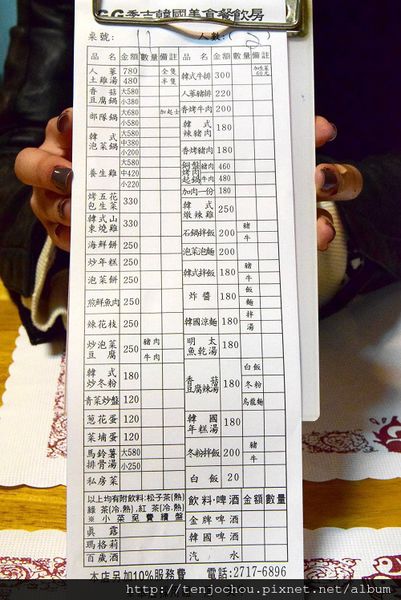 GG季吉韓國美食餐飲房
桌號: 人數:( )
品名 金額 數量 備註
人蔘土雞湯 780 全隻
480 半隻
香菇豆腐鍋 大580
小380
部隊鍋 大580 加起士
小380
韓式泡菜鍋 大580
中380
小200
養生雞 大580
中420
小220
烤五花包生菜 330
韓式山東燒雞 330
海鮮餅 250
炒年糕 250
泡菜餅 250
煎鮮魚肉 250
辣花枝 250
炒泡菜豆腐 250 豬肉
牛肉
韓式炒冬粉 180
青菜炒盤 120
蔥花蛋 120
菜埔蛋 120
馬鈴薯排骨湯 大580
小250
私房菜
以上均有附飲料:松子茶(熱)
綠茶(冷.熱),紅茶(冷.熱)
※小菜免費續盤
真露
瑪格莉
百歲酒
品名 金額 數量 備註
韓式牛排 300 加生菜60元
人蔘豬排 220
香烤牛肉 200
韓式辣豬肉 180
香烤豬肉 180
銅盤烤肉起鍋 豬肉 460
牛肉 480
加肉一份 180
韓式燉辣雞 250
石鍋拌飯 200 豬
牛
泡菜泡麵 200
韓式拌飯 180 豬
牛
炸醬 180 飯
麵
韓國涼麵 180 拌
湯
明太魚乾湯 180
香菇豆腐辣湯 180 白飯
冬粉
烏龍麵
韓國年糕湯 180
冬粉拌飯 200 豬
牛
白飯 20
飲料.啤酒 金額 數量
金牌啤酒
韓國啤酒
汽水
本店另加10%服務費 電話:2717-6896
http://tenjochou.pixnet.net/album